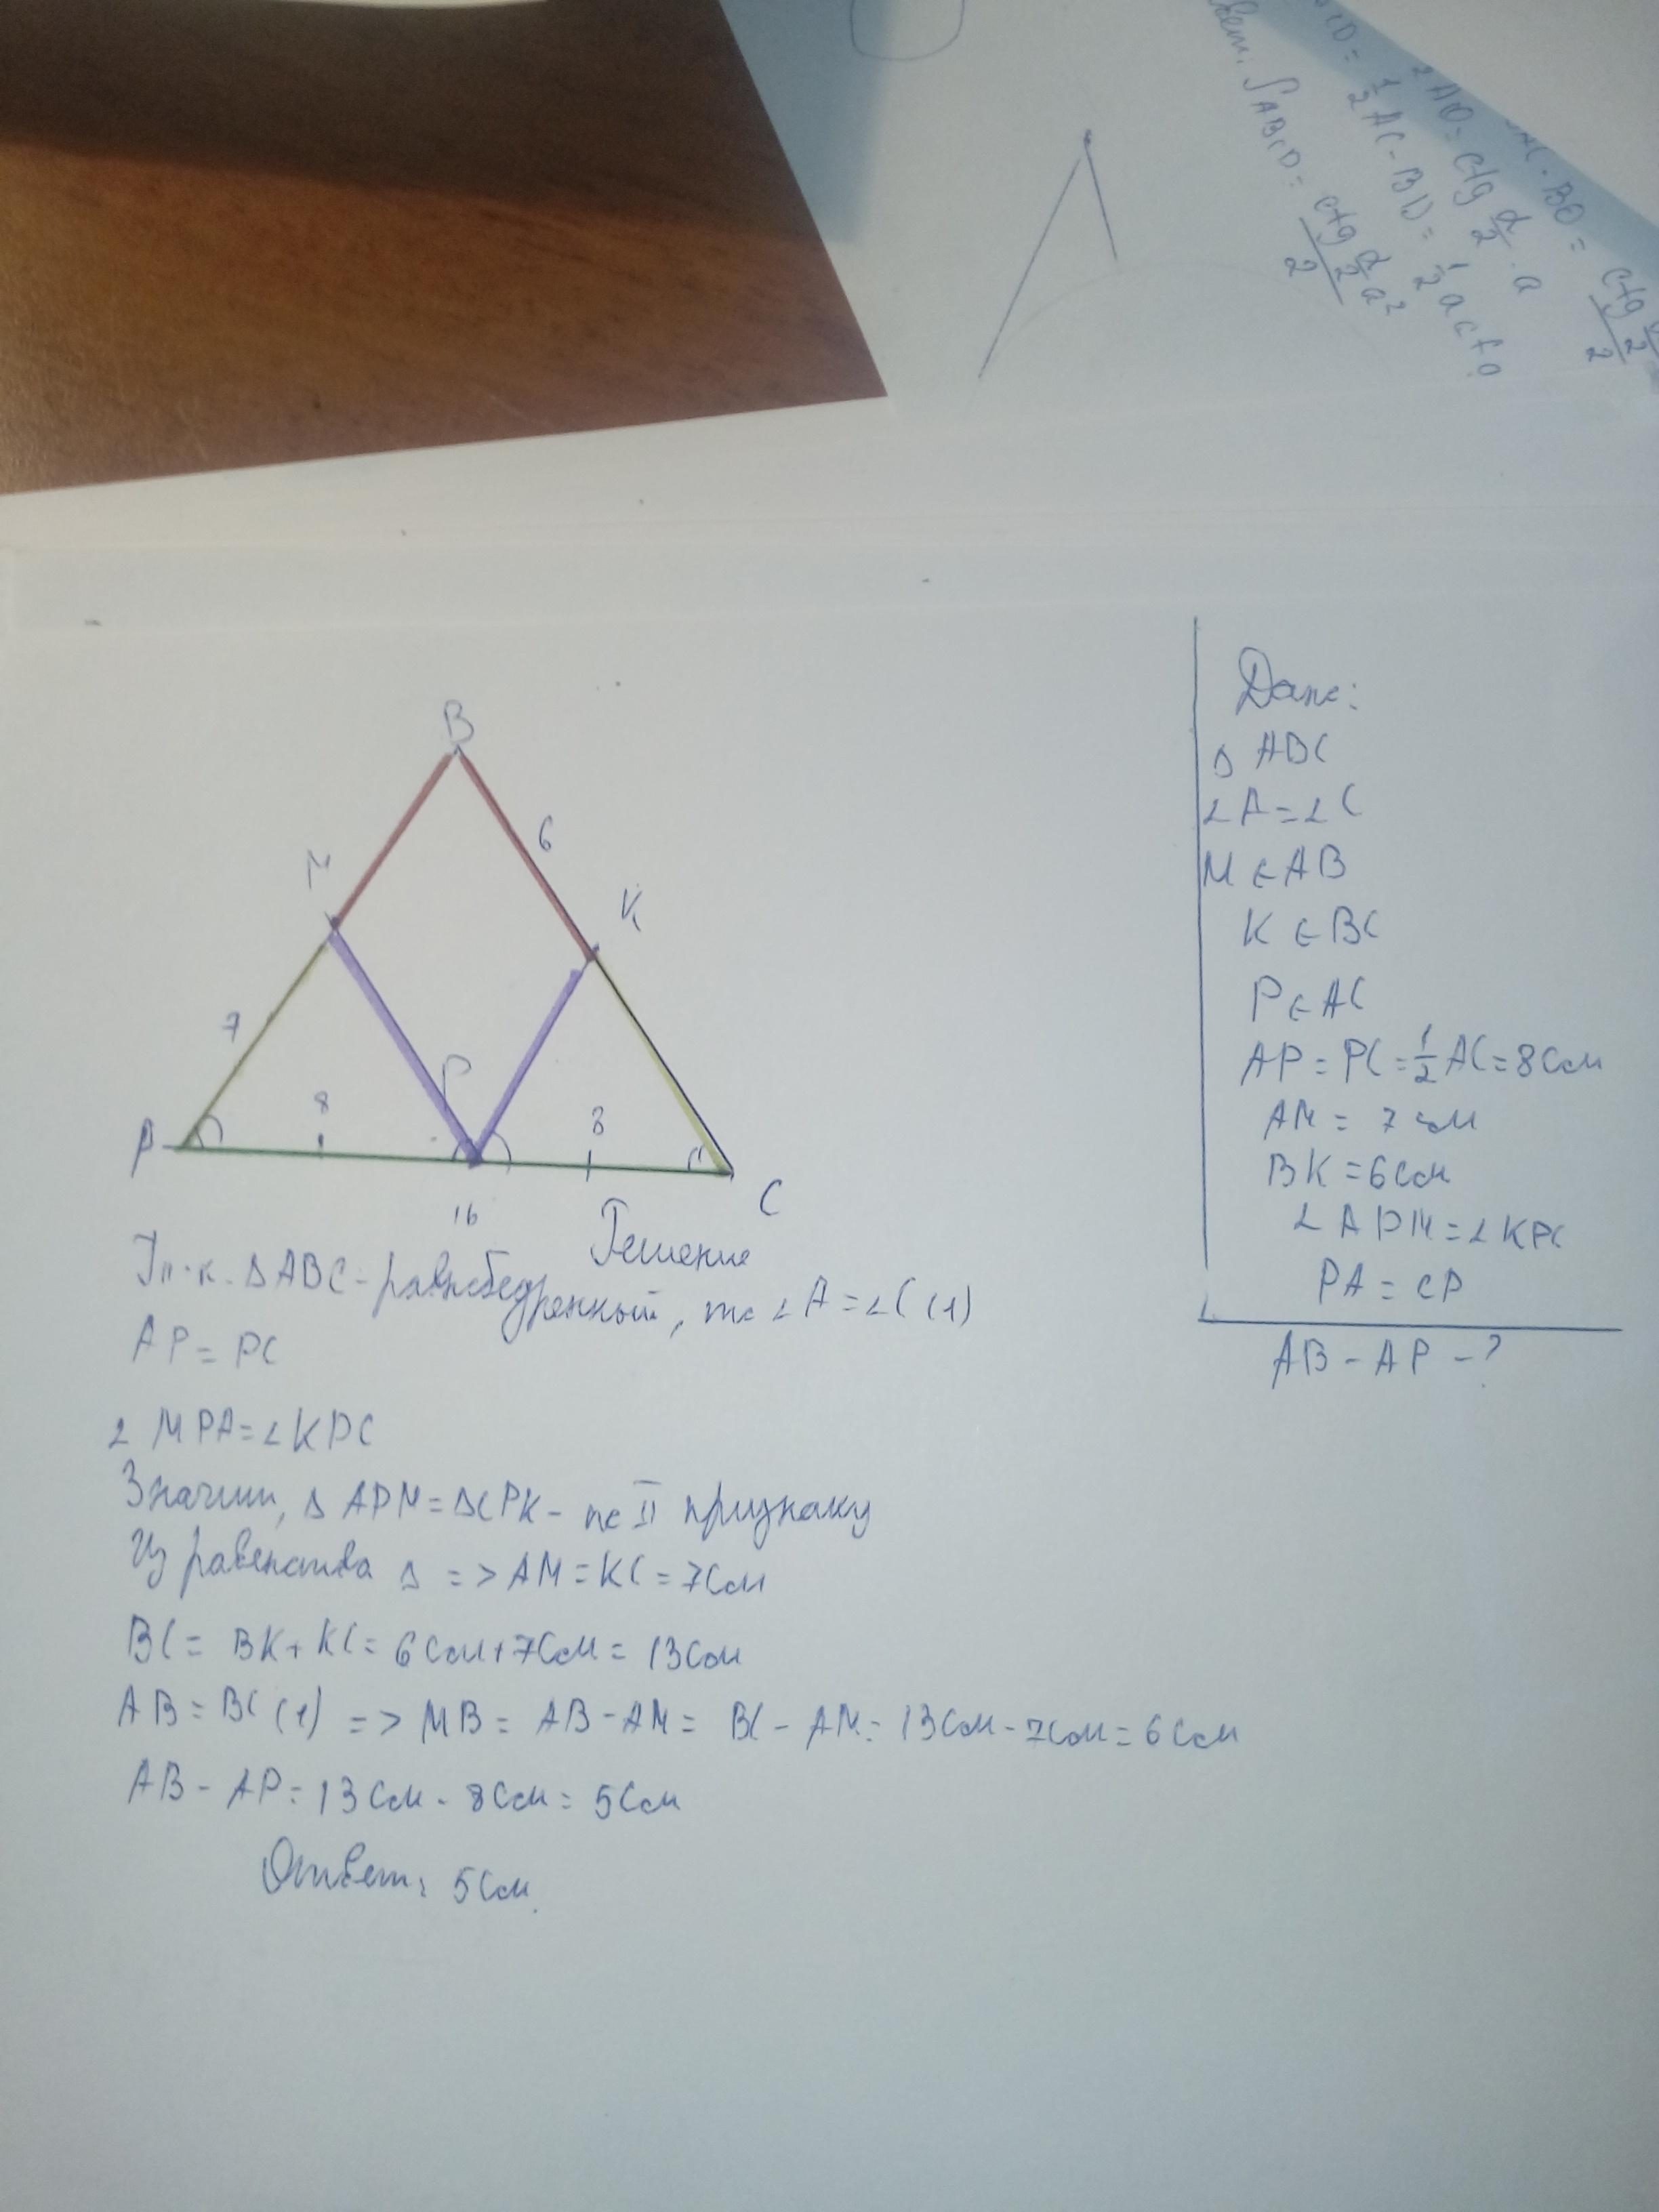 ∫ABCD = ctg α/2 a² / 2
1/2 AC - BD = 1/2 a
2 AO = ctg α/2 · a
B
6
M
K
7
P
8
8
A
C
16
Дано:
Δ ABC
∠A = ∠C
M ∈ AB
K ∈ BC
P ∈ AC
AP = PC = 1/2 AC = 8 см
AM = 7 см
BK = 6 см
∠APM = ∠KPC
PA = CP
AB - AP - ?
Решение
Т.к. ΔABC - равнобедренный, то ∠A = ∠C (1)
AP = PC
∠MPA = ∠KPC
Значит, Δ APM = ΔCPK - по II признаку
Из равенства Δ => AM = KC = 7 см
BC = BK + KC = 6 см + 7 см = 13 см
AB = BC (1) => MB = AB - AM = BC - AM = 13 см - 7 см = 6 см
AB - AP = 13 см - 8 см = 5 см
Ответ: 5 см.